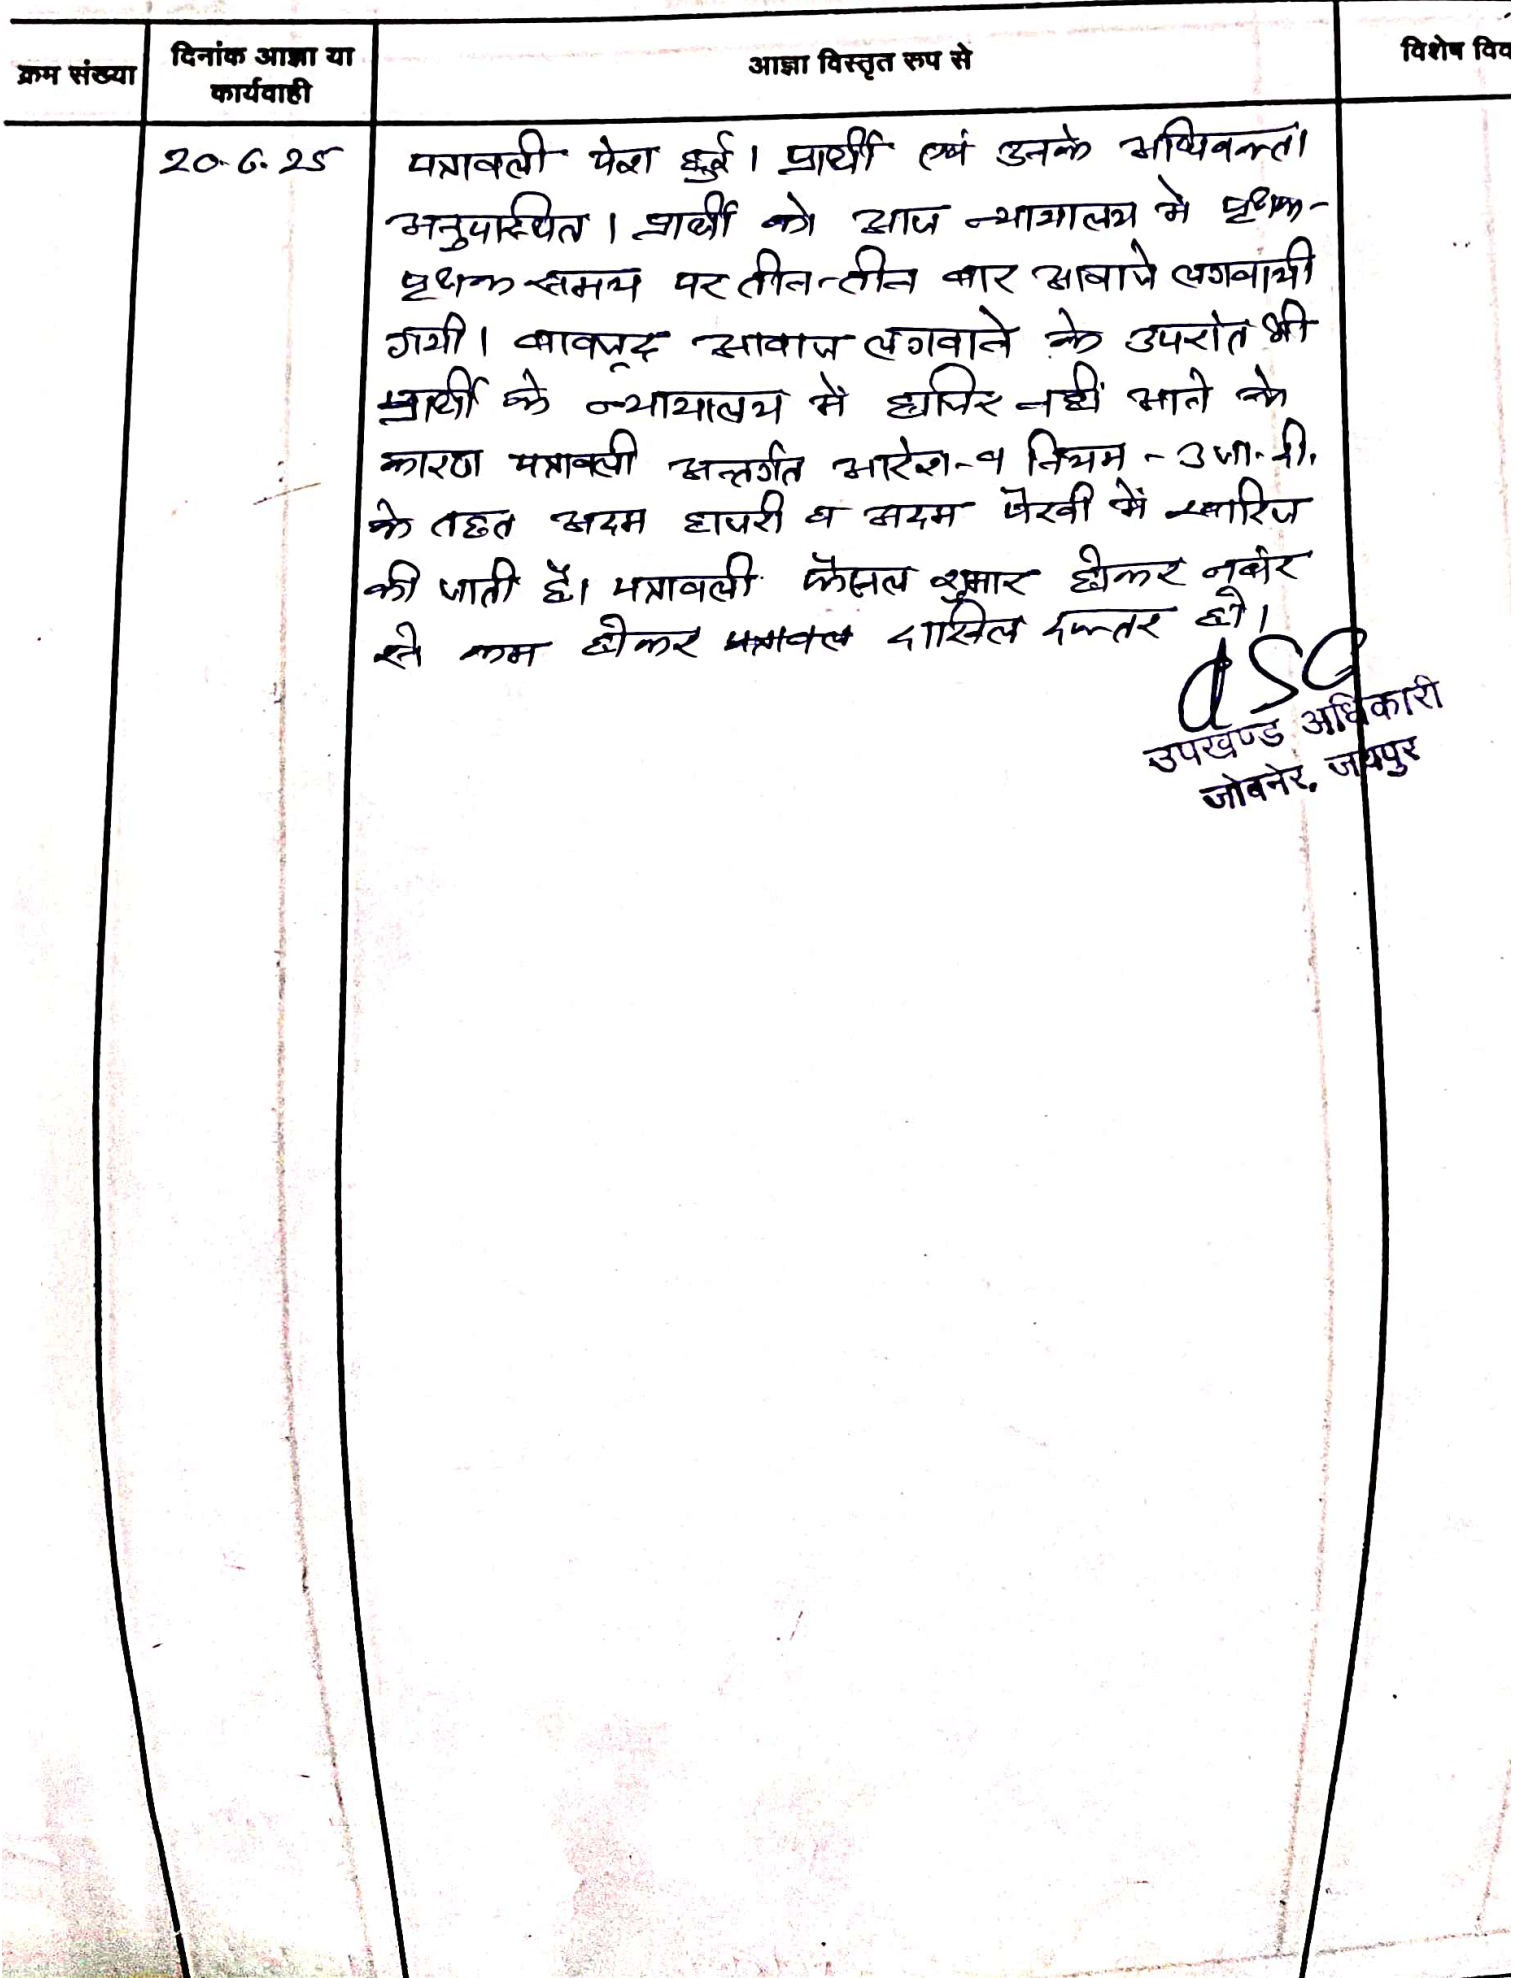 क्रम संख्या
दिनांक आज्ञा या
कार्यवाही
आज्ञा विस्तृत रुप से
विशेष विव
20.6.25
पत्रावली पेश हुई। प्रार्थी एवं उनके अधिवक्ता
अनुपस्थित। प्रार्थी को आज न्यायालय मे पृथक-
पृथक समय पर तीन-तीन बार आवाजे लगवायी
गयी। बावजूद आवाज लगवाने के उपरांत भी
प्रार्थी के न्यायालय में हाजिर नहीं आने के
कारण पत्रावली अन्तर्गत आदेश-9 नियम-3 जा.दी.
के तहत अदम हाजरी व अदम पैरवी में खारिज
की जाती है। पत्रावली फैसल शुमार होकर नम्बर
से कम होकर पत्रावल दाखिल दफ्तर हो।
उपखण्ड अधिकारी
जोबनेर, जयपुर